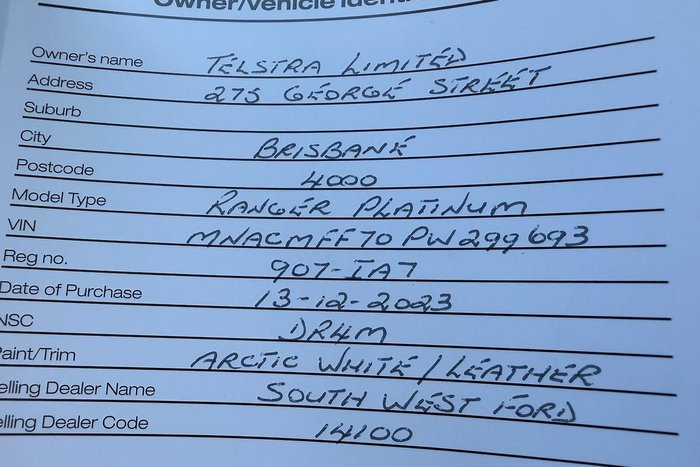 Owner/Vehicle Identi
Owner's name TELSTRA LIMITED
Address 275 GEORGE STREET
Suburb
City BRISBANE
Postcode 4000
Model Type RANGER PLATINUM
VIN MNACMFF70PW299693
Reg no. 907-IA7
Date of Purchase 13-12-2023
NSC DR4M
Paint/Trim ARCTIC WHITE / LEATHER
elling Dealer Name SOUTH WEST FORD
elling Dealer Code 14100